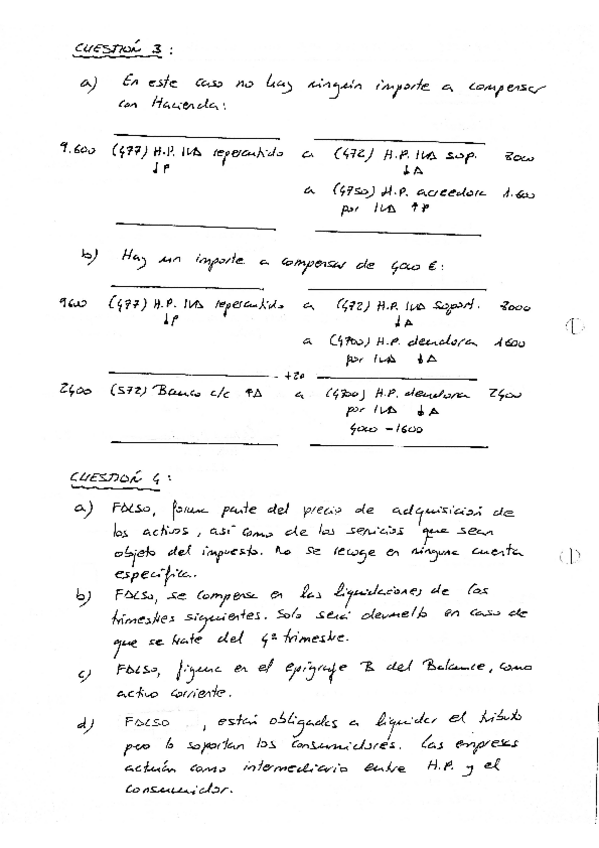 CUESTIÓN 3:
a) En este caso no hay ningún importe a compensar
con Hacienda:
9.600 (477) H.P. IVA repercutido a (472) H.P. IVA sop. 8000
↓P ↓A
a (4750) H.P. acreedora 1.600
por IVA ↑P
b) Hay un importe a compensar de 4000 €:
9600 (477) H.P. IVA repercutido a (472) H.P. IVA soport. 8000
↓P ↓A
a (4700) H.P. deudora 1600
por IVA ↓A
(1)
2400 (572) Banco c/c ↑A a (4700) H.P. deudora 2400
por IVA ↓A
4000 - 1600
CUESTIÓN 4:
a) FALSO, forma parte del precio de adquisición de
los activos, así como de los servicios que sean
objeto del impuesto. No se recoge en ninguna cuenta
específica.
(1)
b) FALSO, se compensa en las liquidaciones de los
trimestres siguientes. Solo será devuelto en caso de
que se trate del 4º trimestre.
c) FALSO, figura en el epígrafe B del Balance, como
activo corriente.
d) FALSO, están obligadas a liquidar el tributo
pero lo soportan los consumidores. Las empresas
actúan como intermediario entre H.P. y el
consumidor.